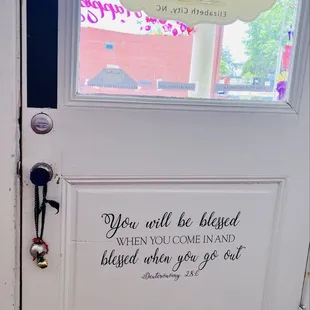 Elizabeth City, NC
You will be blessed
WHEN YOU COME IN AND
blessed when you go out
Deuteronomy 28:6